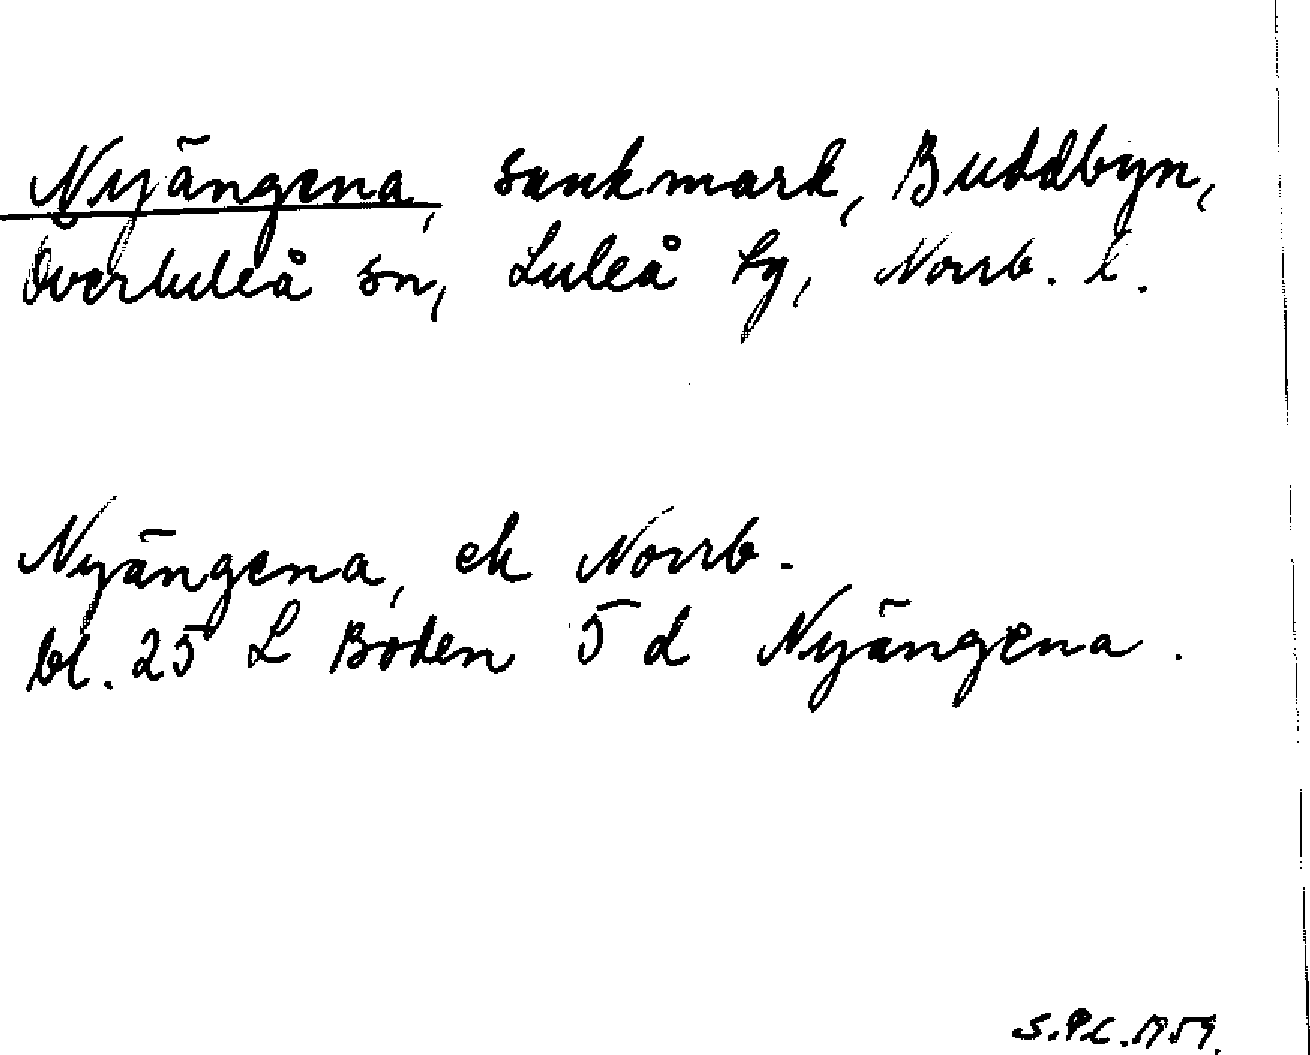 Nyängena, sankmark, Buddbyn,
Överluleå sn, Luleå tg, Norrb. l.
Nyängena, ek Norrb.
bl. 25 L Boden 5 d Nyängena.
S.P.L. 1959.